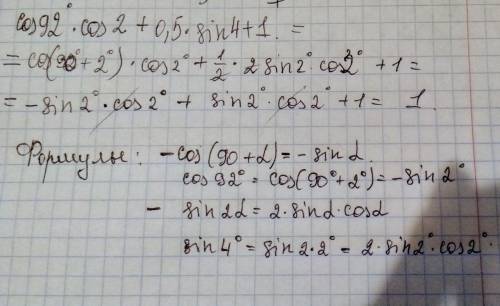 cos92°·cos2 + 0,5·sin4+1. =
= co(90°+2°)·cos2° + 1/2·2sin2°cos2° +1=
= -sin2°·cos2° + sin2°·cos2° +1 = 1.
Формулы: -cos(90+α)=-sinα.
cos92° = cos(90°+2°)=-sin2°
- sin2α = 2·sinα·cosα
sin4° = sin2·2° = 2·sin2°·cos2°.